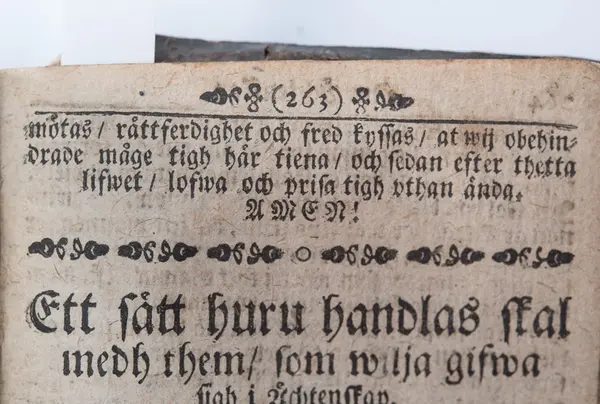 (263)
mötas / rättferdighet och fred kyssas / at wij obehin-
drade måge tigh här tiena / och sedan efter thetta
lifwet / lofwa och prisa tigh vthan ända.
AMEN!
Ett sätt huru handlas skal
medh them / som wilja gifwa
sigh i Ächtenskap.